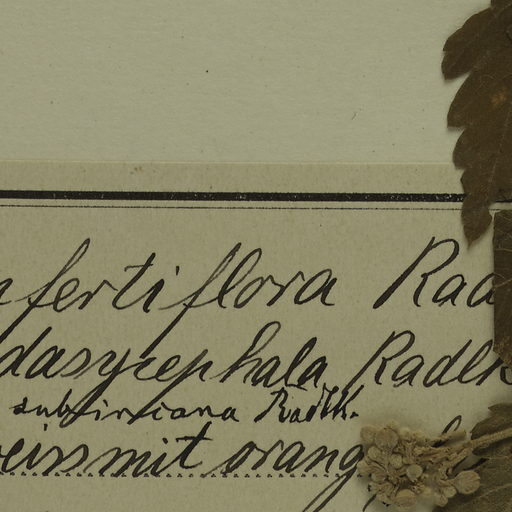 nfertiflora Rad
dasycephala Radlk
subsiricana Radlk.
weiss mit orang